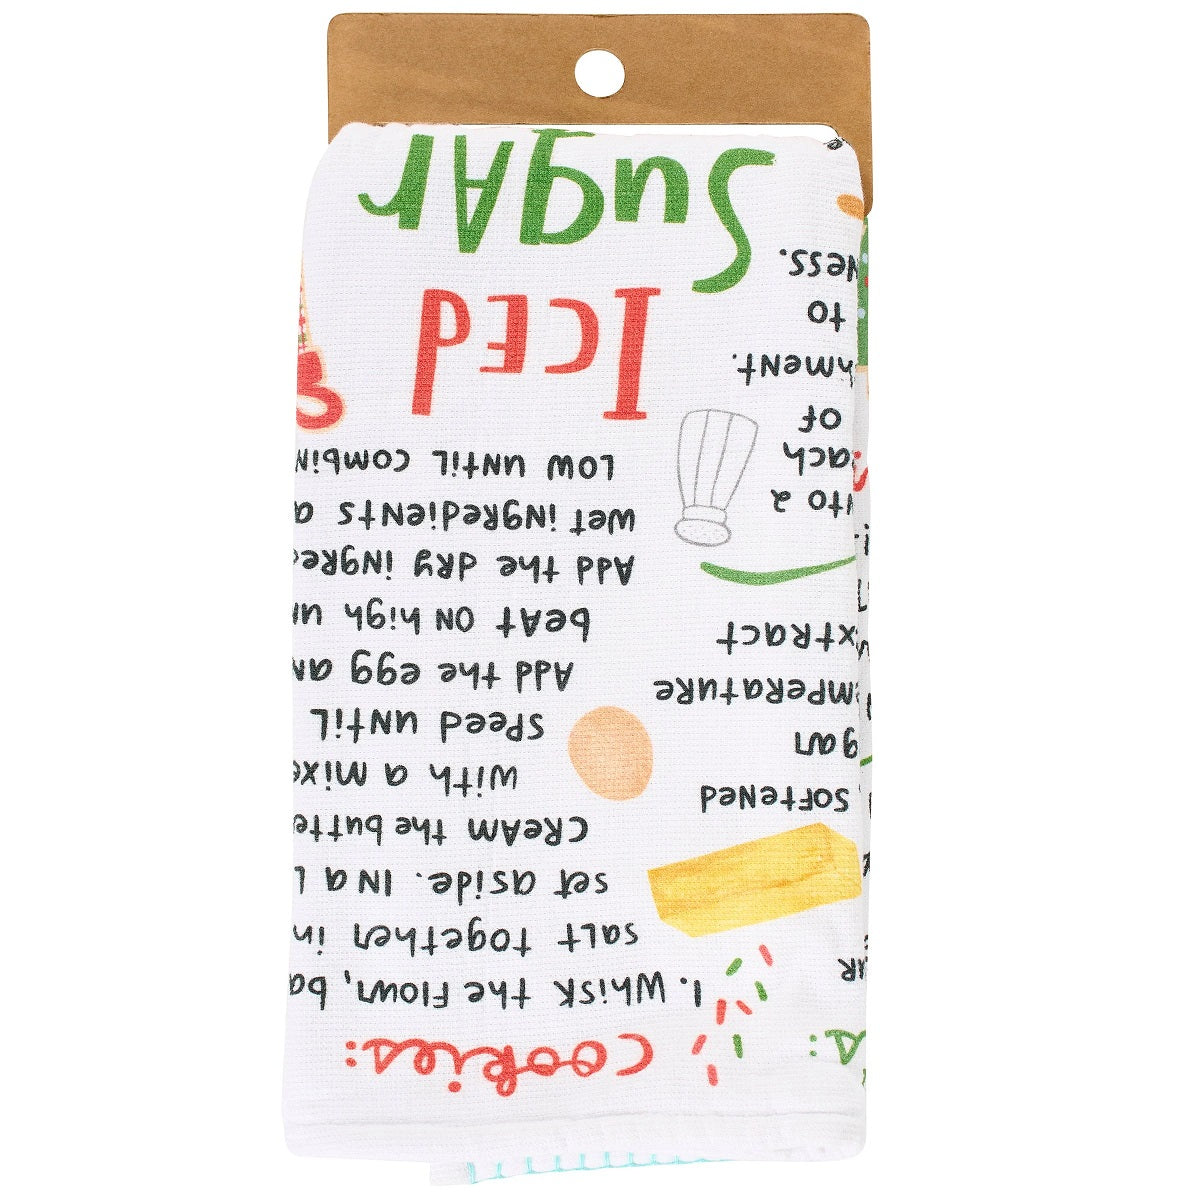 s:
AR
softened
gar
emperature
xtract
nto a
each
of
hment.
to
ness.
cookies:
1. Whisk the flour, ba
salt together in
set aside. In a l
Cream the butte
with a mixe
speed until
Add the egg an
beat on high un
Add the dry ingre
wet ingredients a
low until combin
Iced
Sugar